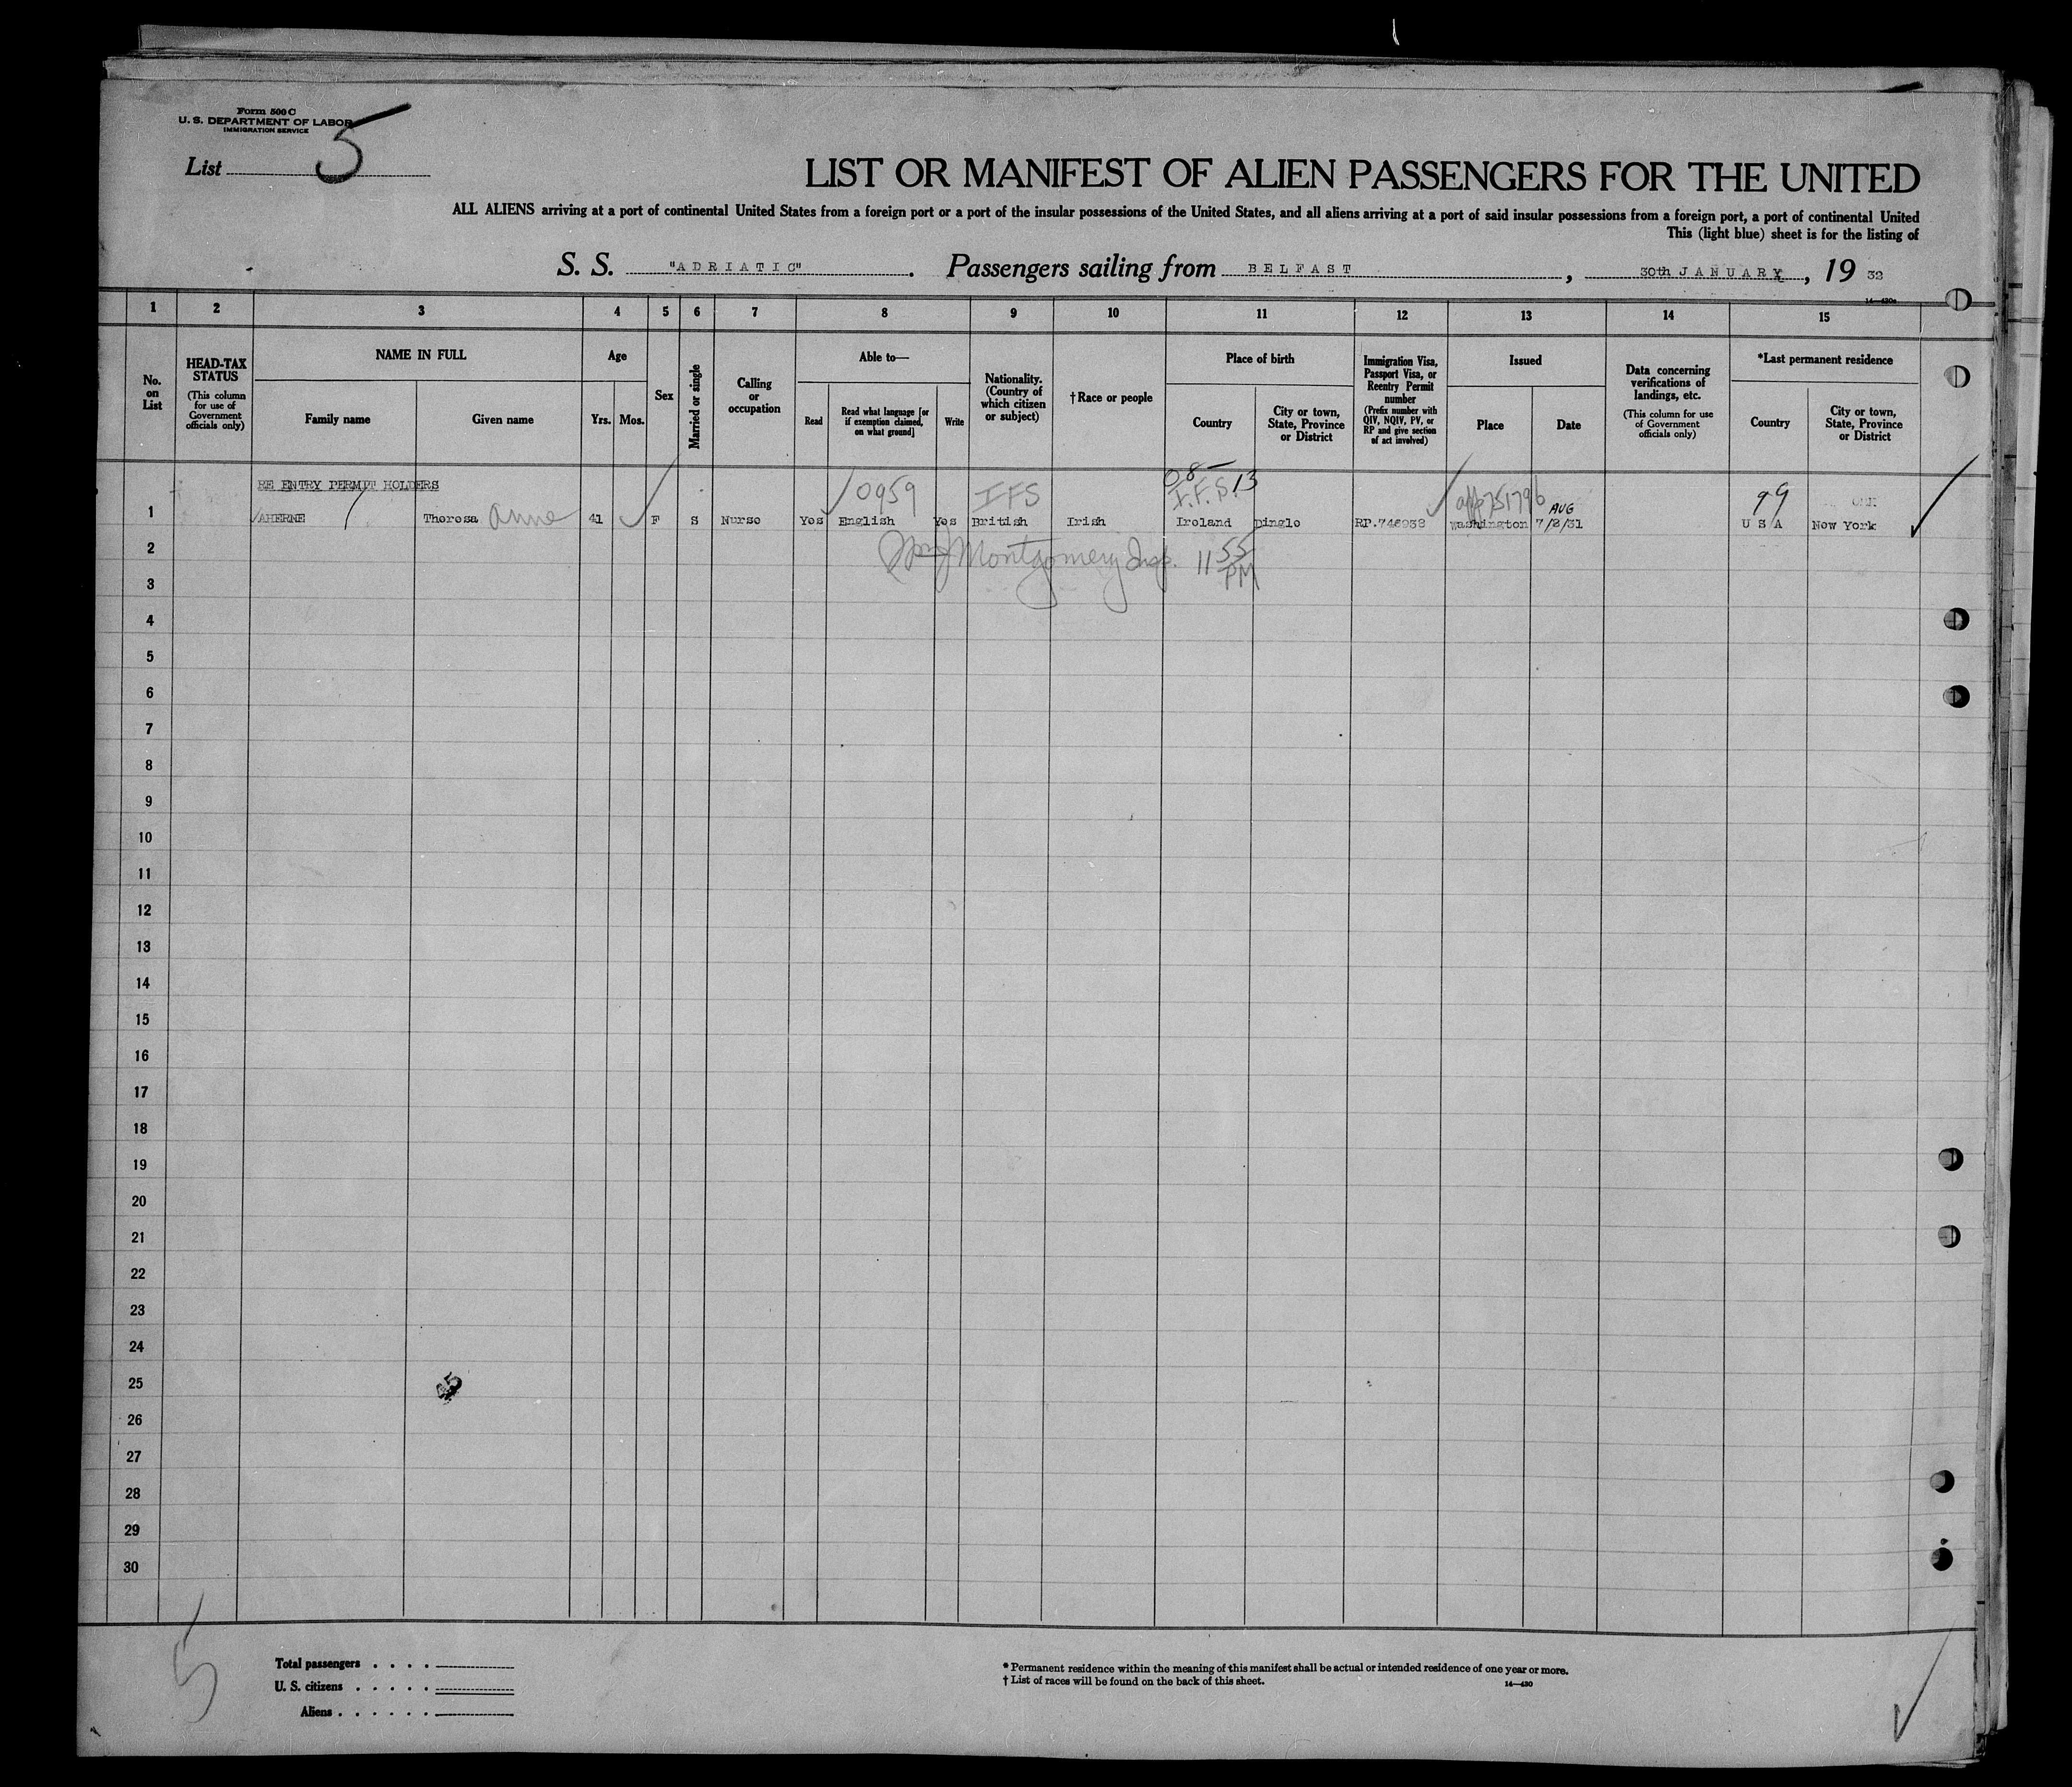 Form 500 C
U. S. DEPARTMENT OF LABOR
IMMIGRATION SERVICE
List 5
LIST OR MANIFEST OF ALIEN PASSENGERS FOR THE UNITED
ALL ALIENS arriving at a port of continental United States from a foreign port or a port of the insular possessions of the United States, and all aliens arriving at a port of said insular possessions from a foreign port, a port of continental United
This (light blue) sheet is for the listing of
S. S. "ADRIATIC". Passengers sailing from BELFAST, 30th JANUARY, 19 32
14—430a
1 2 3 4 5 6 7 8 9 10 11 12 13 14 15
No. on List
HEAD-TAX STATUS (This column for use of Government officials only)
NAME IN FULL
Family name
Given name
Age
Yrs.
Mos.
Sex
Married or single
Calling or occupation
Able to—
Read
Read what language [or if exemption claimed, on what ground]
Write
Nationality. (Country of which citizen or subject)
†Race or people
Place of birth
Country
City or town, State, Province or District
Immigration Visa, Passport Visa, or Reentry Permit number (Prefix number with QIV, NQIV, PV, or RP and give section of act involved)
Issued
Place
Date
Data concerning verifications of landings, etc. (This column for use of Government officials only)
*Last permanent residence
Country
City or town, State, Province or District
RE ENTRY PERMIT HOLDERS
0959 IFS 08-13 I.F.S. app751796 AUG 99
1 AHERNE Theresa Anne 41 F S Nurse Yes English Yes British Irish Ireland Dingle RP.746938 Washington 7/8/31 U S A New York
2 Montgomery Insp. 11 55 PM
3
4
5
6
7
8
9
10
11
12
13
14
15
16
17
18
19
20
21
22
23
24
25
26
27
28
29
30
5
Total passengers . . . .
U. S. citizens . . . . .
Aliens . . . . . .
* Permanent residence within the meaning of this manifest shall be actual or intended residence of one year or more.
† List of races will be found on the back of this sheet.
14—430